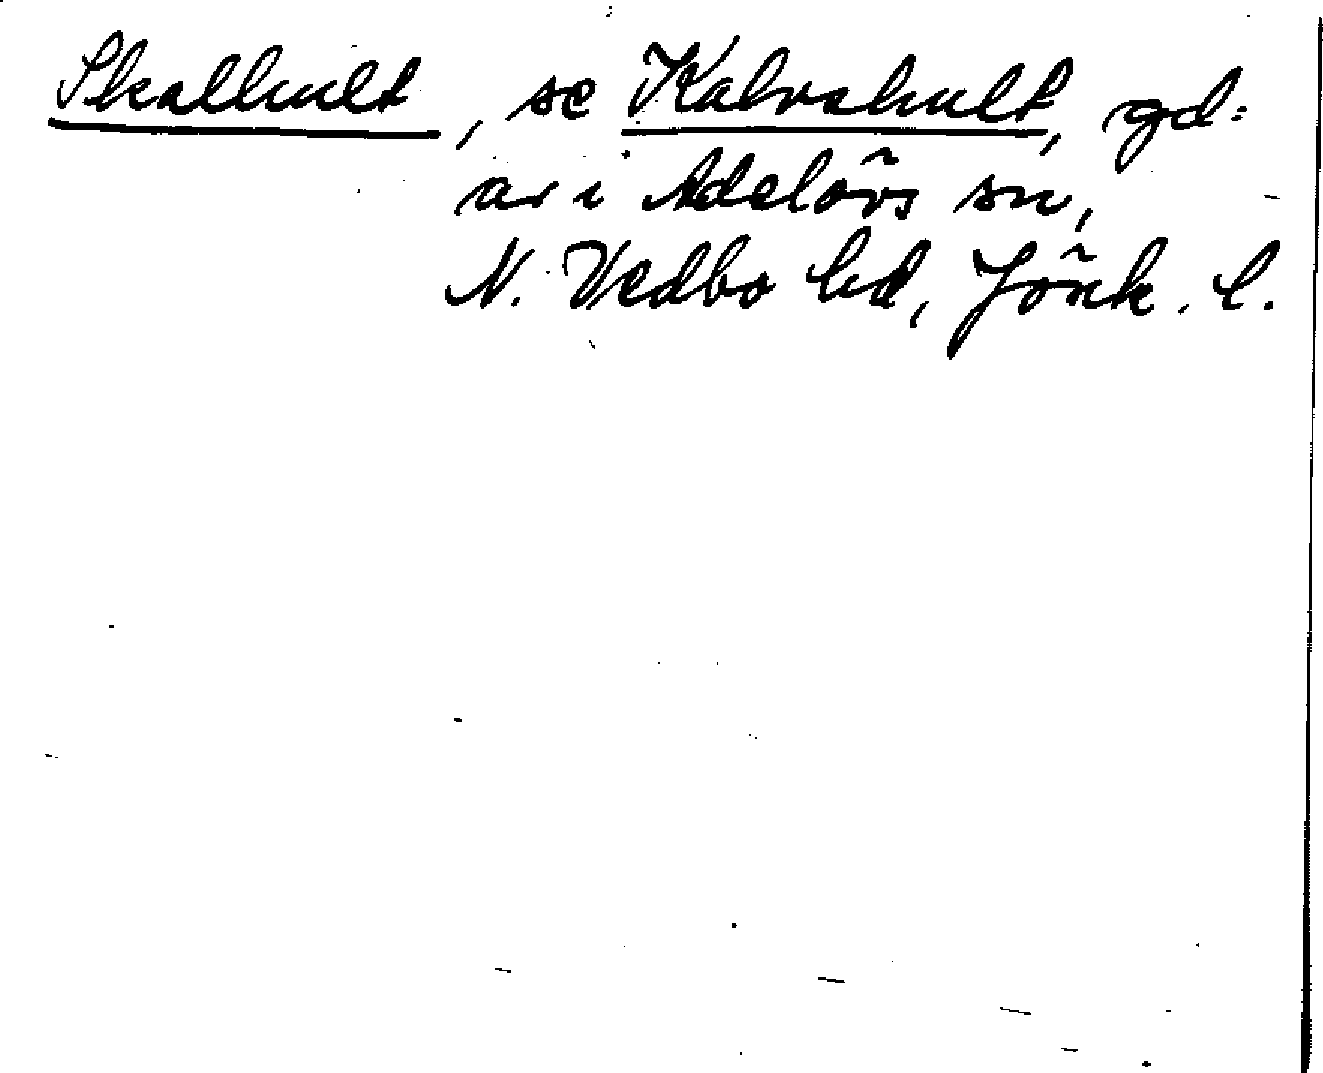 Skalhult, se Kalvshult, gd=
ar i Adelövs sn,
N. Vedbo hd, Jönk. l.